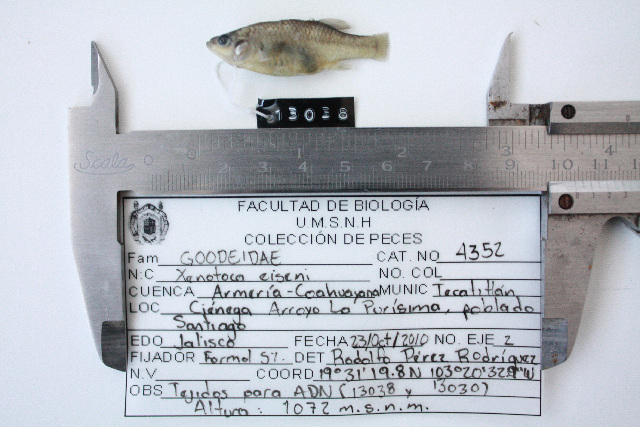 13038
Scala 0 1 2 3 4
0 1 2 3 4 5 6 7 8 9 10 11 12
FACULTAD DE BIOLOGÍA
U.M.S.N.H
COLECCIÓN DE PECES
Fam GOODEIDAE CAT. NO 4352
N:C Xenotoca eiseni NO. COL
CUENCA Armería-Coahuayana MUNIC Tecalitlán
LOC Ciénega Arroyo La Purísima, poblado
Santiago
EDO Jalisco FECHA 23/Oct/2010 NO. EJE 2
FIJADOR Formol 5%. DET Rodolfo Pérez Rodríguez
N.V COORD 19°31'19.8N 103°20'32.9"W
OBS Tejidos para ADN (13038 y 13030)
Altura: 1072 m.s.n.m.